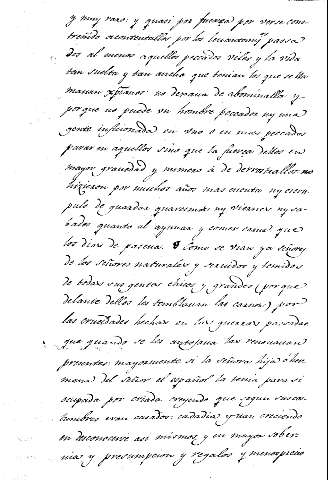 y muy raro: y quasi por fuerza por verse cons
treñido a contentallos por los levantamtos passa
dos al menos aquellos peccados viles y la vida
tan suelta y tan ancha que tenian los que se lla
mavan xpñanos: no dexava de abominallos y
porque no puede un hombre peccador ny una
gente inficionada en uno o en mas peccados
parar en aquellos sino que la fuerza dellos en
mayor gravedad y numero à de derrocallos no
hizieron por muchos años mas cuenta ny escru
pulo de guardar quaresma ny viernes ny sa
bados quanto al ayunar y comer carne que
los dias de pascua. Como se vian ya señores
de los señores naturales y servidos y temidos
de todas sus gentes chicas y grandes (porque
delante dellos les temblavan las carnes) por
las crueldades hechas en las guerras passadas
que quando se les antojava las renovavan
presentes: mayormente si la señora hija o her
mana del señor el español la tenia para si
ocupada por criada creyendo que segun sus cos
tumbres eran casados: cadadia yvan creciendo
en desconocerse asi mismos y en mayor sober
via y presumpcion y regalos y menosprecio